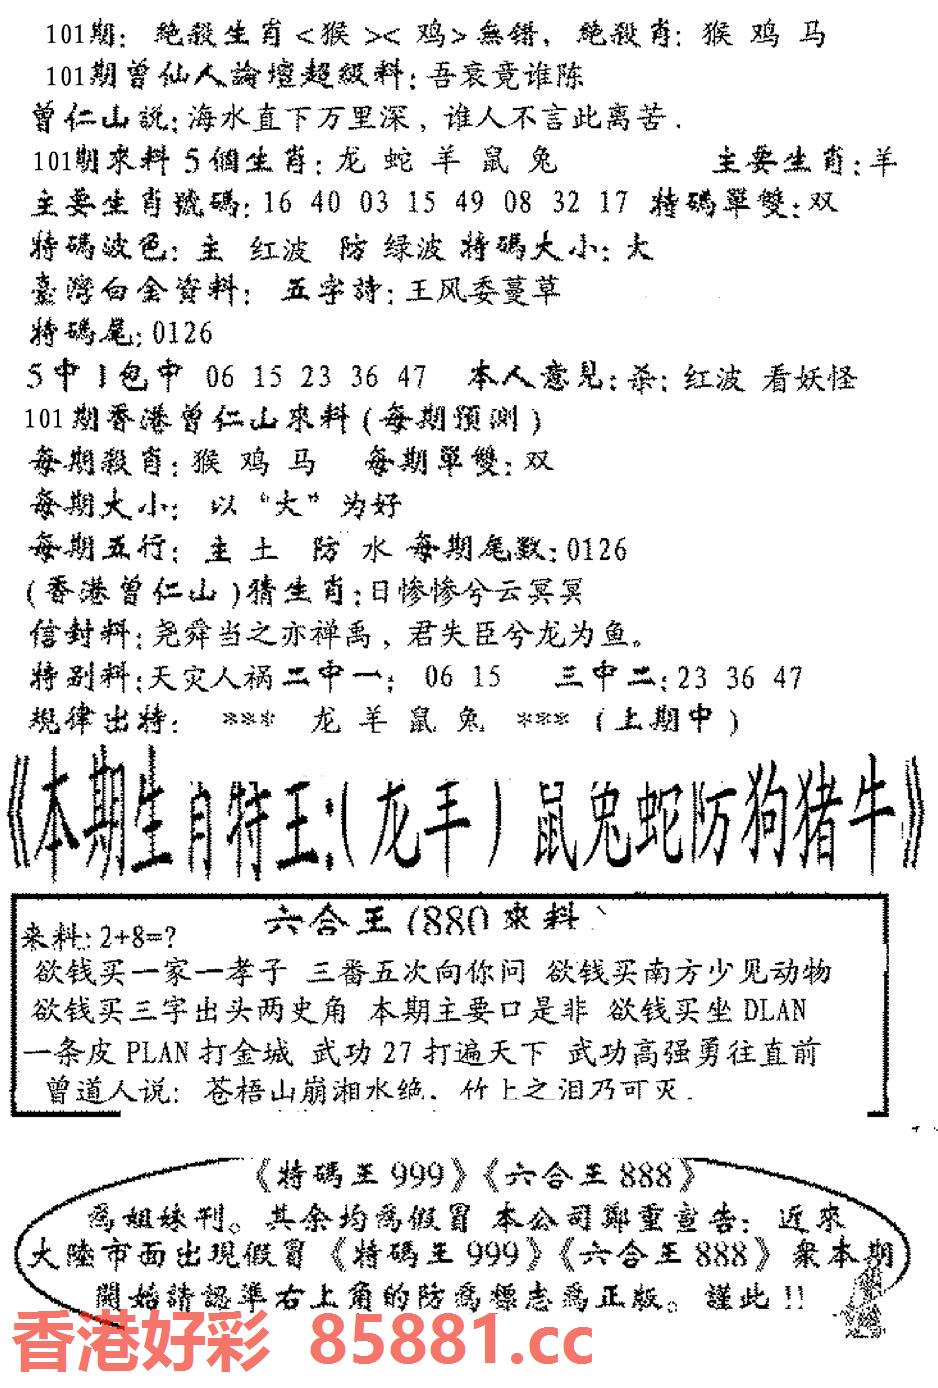 101期: 絶殺生肖<猴><鸡>無错, 絶殺肖: 猴 鸡 马
101期曾仙人論壇超級料:吾衰竟谁陈
曾仁山説:海水直下万里深, 谁人不言此离苦.
101期來料 5 個生肖: 龙 蛇 羊 鼠 兔 主要生肖:羊
主要生肖號碼:16 40 03 15 49 08 32 17 特碼單雙:双
特碼波色: 主 红波 防 绿波 特碼大小: 大
臺灣白金資料: 五字詩:王风委蔓草
特碼尾:0126
5 中 1 包中 06 15 23 36 47 本人意見:杀: 红波 看妖怪
101期香港曾仁山來料(每期預測)
每期殺肖:猴 鸡 马 每期單雙:双
每期大小: 以“大”为好
每期五行: 主 土 防 水 每期尾数:0126
(香港曾仁山)猜生肖:日惨惨兮云冥冥
信封料:尧舜当之亦禅禹, 君失臣兮龙为鱼。
特别料:天灾人祸二中一: 06 15 三中二:23 36 47
規律出特: *** 龙 羊 鼠 兔 *** (上期中)
《本期生肖特王:(龙羊)鼠兔蛇防狗猪牛》
六合王(880來料)
来料: 2+8=?
欲钱买一家一孝子 三番五次向你问 欲钱买南方少见动物
欲钱买三字出头两史角 本期主要口是非 欲钱买坐 DLAN
一条皮 PLAN 打金城 武功 27 打遍天下 武功高强勇往直前
曾道人说: 苍梧山崩湘水绝. 竹上之泪乃可灭.
《特碼王 999》《六合王 888》
為姐妹刊。其余均為假冒 本公司鄭重宣告: 近來
大陸市面出現假冒《特碼王 999》《六合王 888》衆本期
開始請認準右上角的防為標志為正版。謹此!!
香港好彩 85881.cc